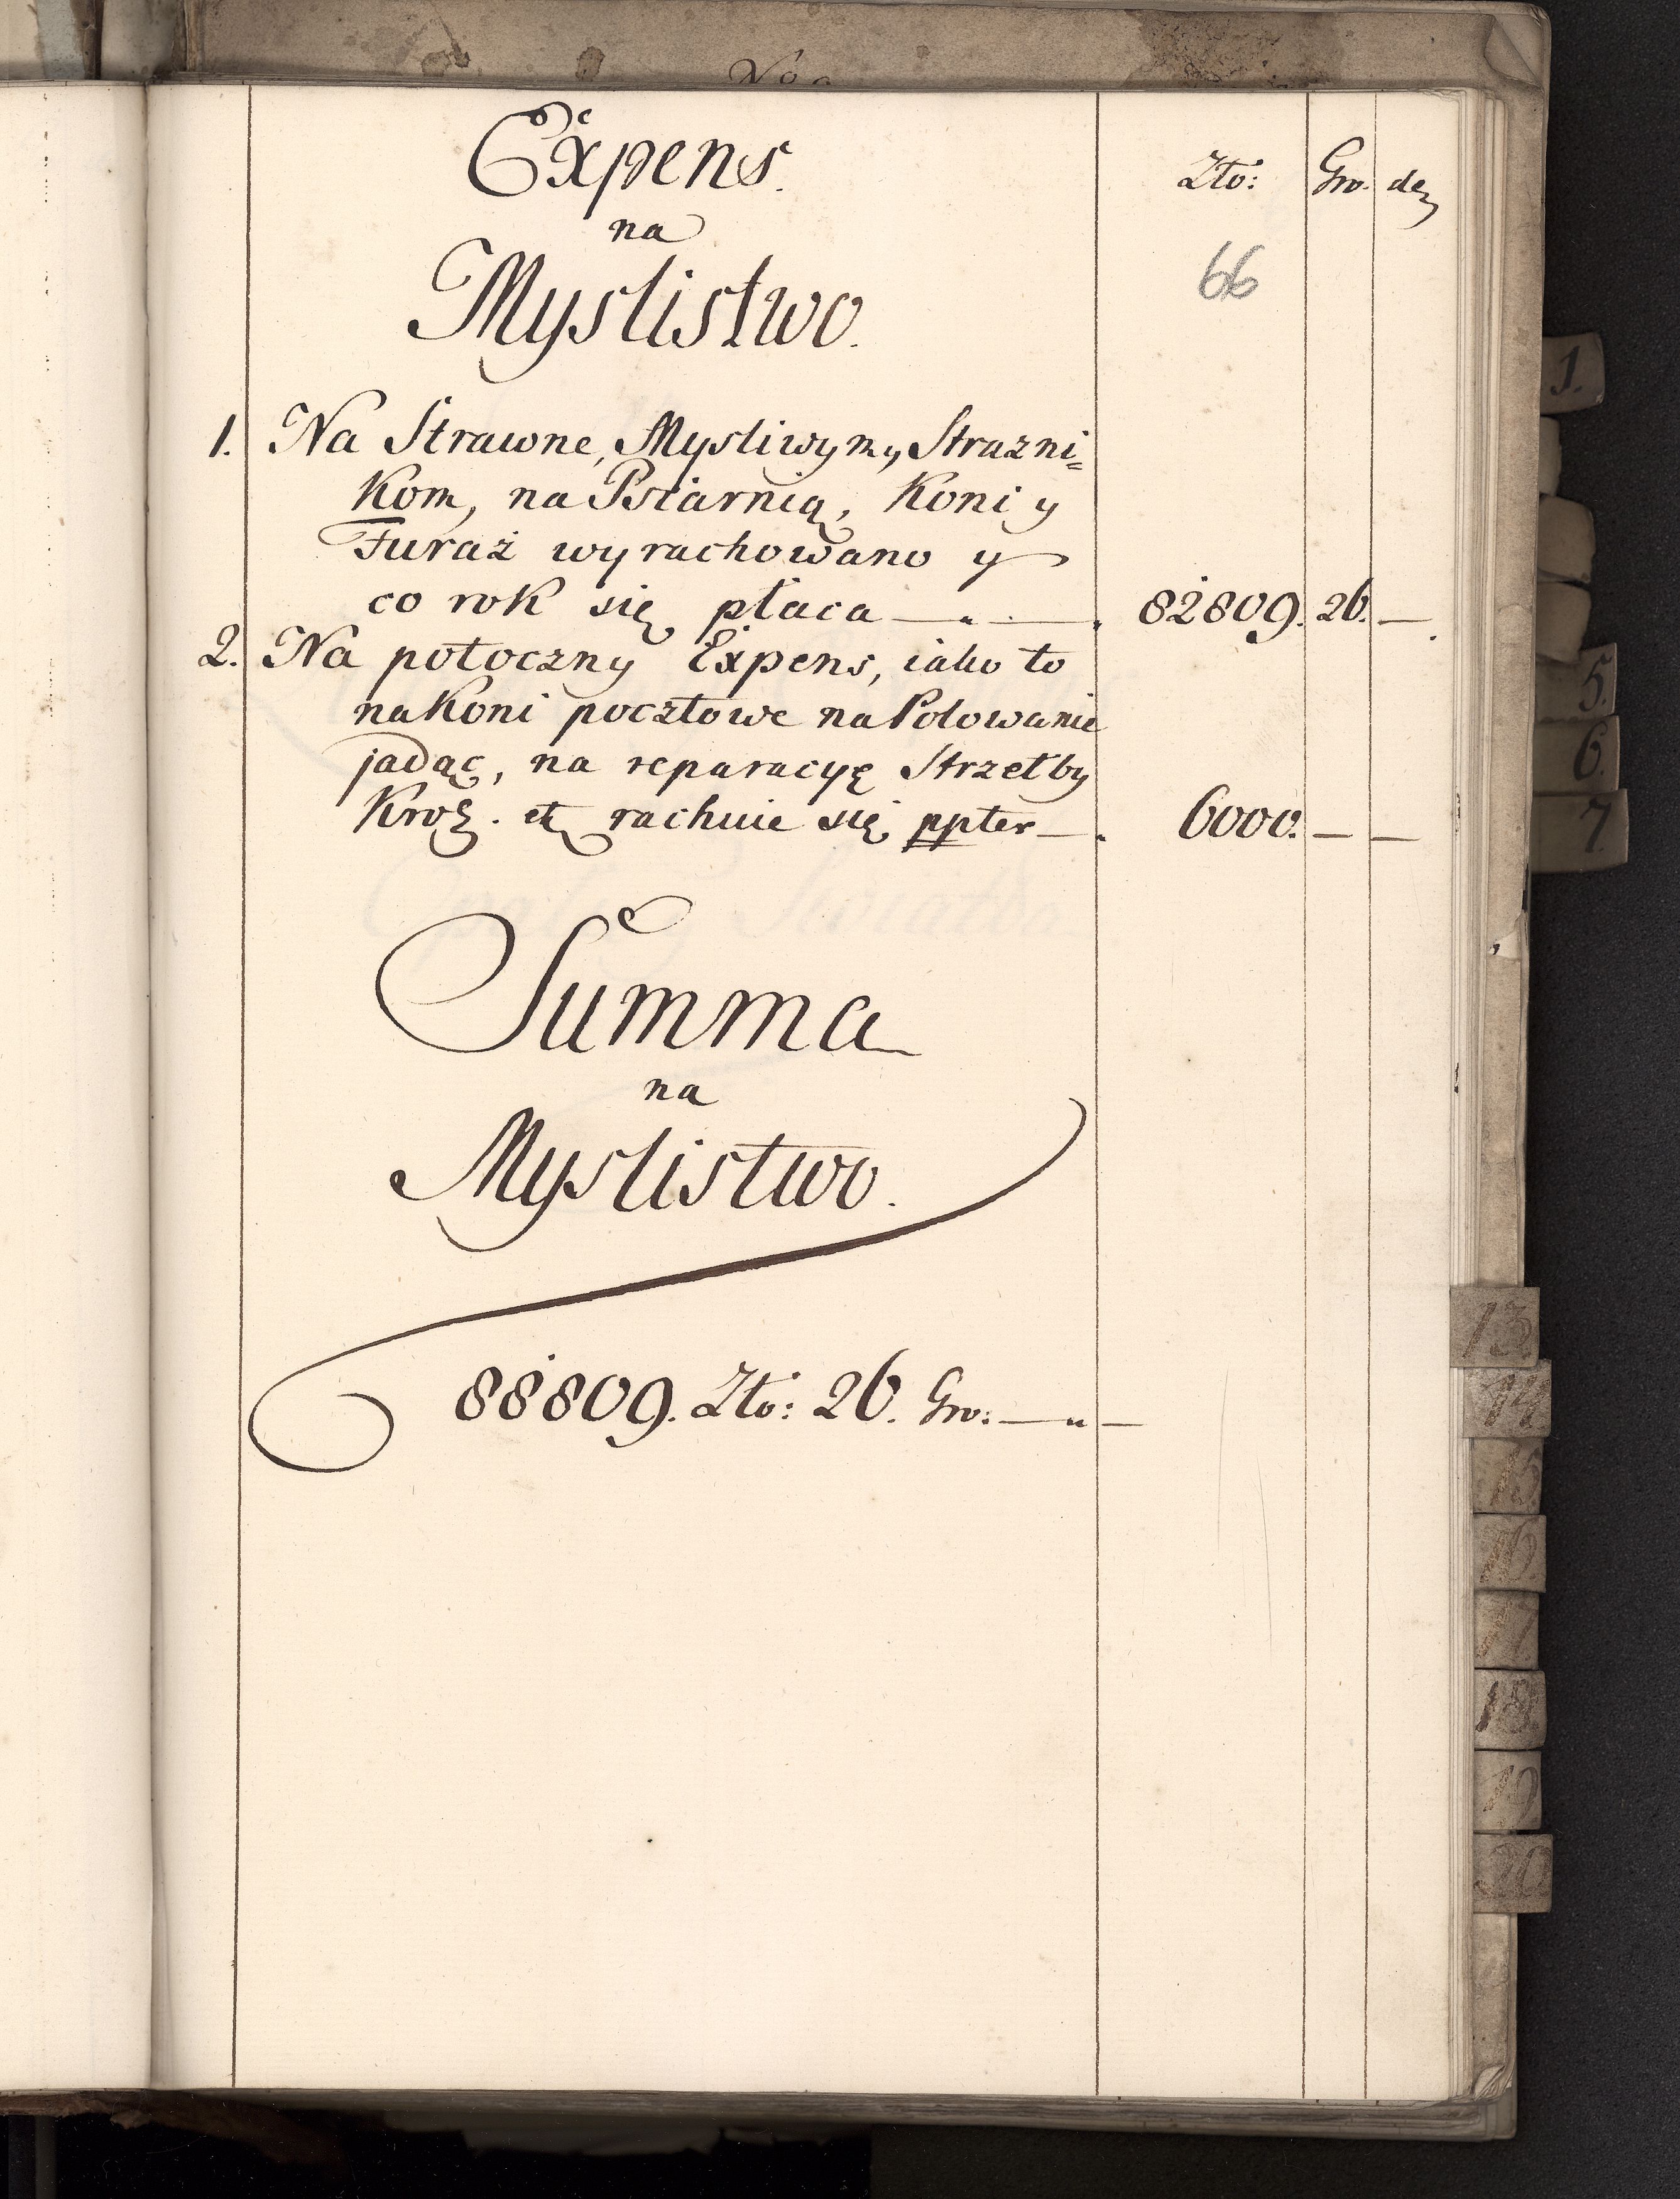 Expens.
na
Myslistwo.
Zło: Gro. den
66
1. Na Strawne, Mysliwym, Strazni=
Kom, na Psiarnią, Koni y
Furaż wyrachowano y
co rok się płaca 82809. 26. —
2. Na potoczny Expens, iako to
na Koni pocztowe na Polowanie
jadąc, na reparacyę Strzelby
Król. etc rachuie się ppter 6000. — —
Summa
na
Myslistwo.
88809. Zło: 26. Gro: —
1.
5.
6.
7.
13
14
15
16
17
18.
19
20